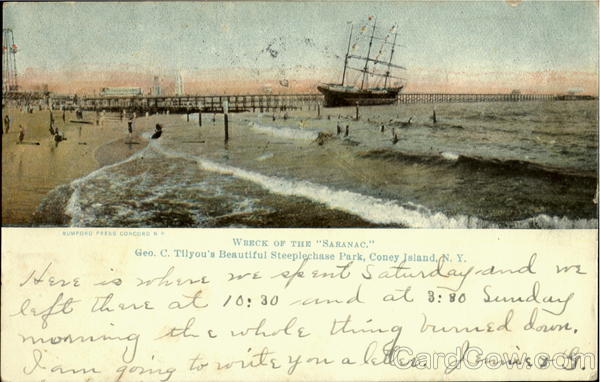 RUMFORD PRESS CONCORD N.H.
WRECK OF THE "SARANAC."
GEO. C. TILYOU'S BEAUTIFUL STEEPLECHASE PARK, CONEY ISLAND, N. Y.
Here is where we spent Saturday and we
left there at 10:30 and at 3:30 Sunday
morning the whole thing burned down.
I am going to write you a letter. Jennie G.
CardCow.com